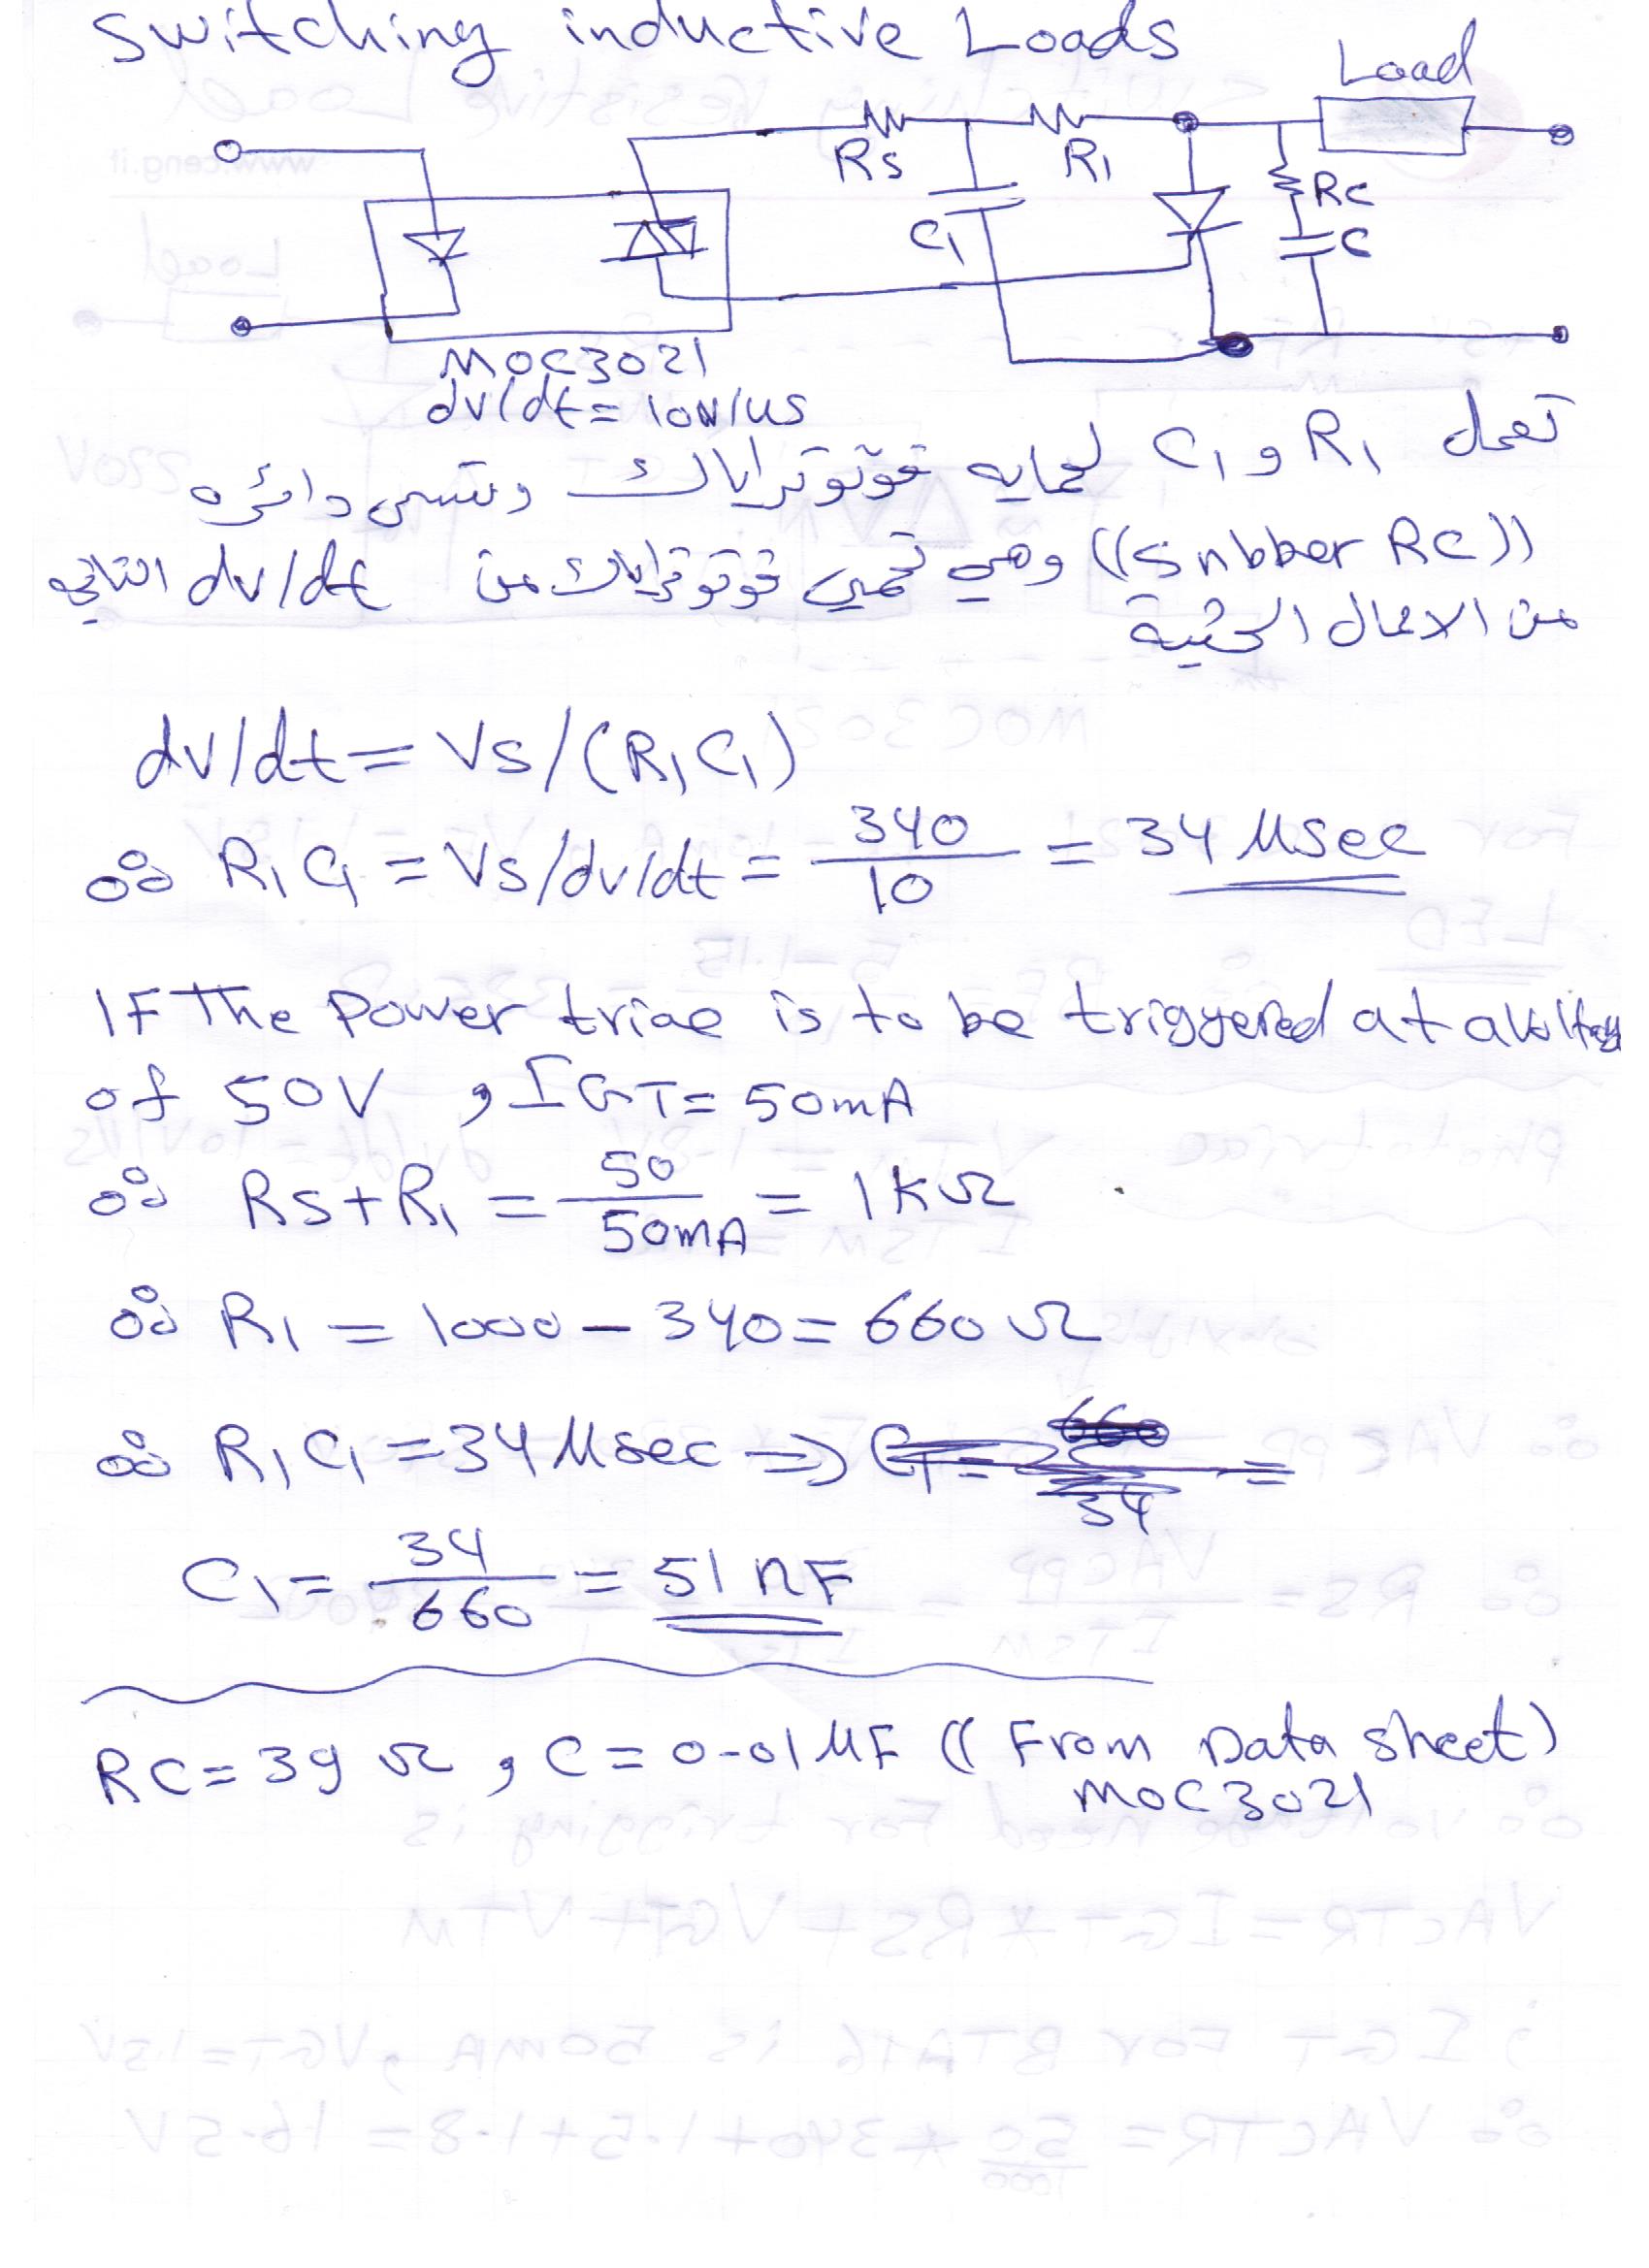 Switching inductive Loads
Load
Rs
R1
Rc
C1
C
MOC3021
dv/dt = 10V/us
تعمل R1 و C1 لحمايه فوتوترياك وتسمى دائره
((Snbber RC)) وهي تحمي فوتوترياك من dv/dt الناتج
من الاحمال الحثية
dv/dt = Vs/(R1C1)
∴ R1C1 = Vs/dv/dt = 340/10 = 34 Msec
IF The Power triac is to be triggered at a voltag
of 50V , IGT = 50mA
∴ Rs+R1 = 50/50mA = 1KΩ
∴ R1 = 1000 - 340 = 660 Ω
∴ R1C1 = 34 Msec ⇒
C1 = 34/660 = 51 nF
RC = 39 Ω , C = 0.01 MF (( From Data sheet)
MOC3021